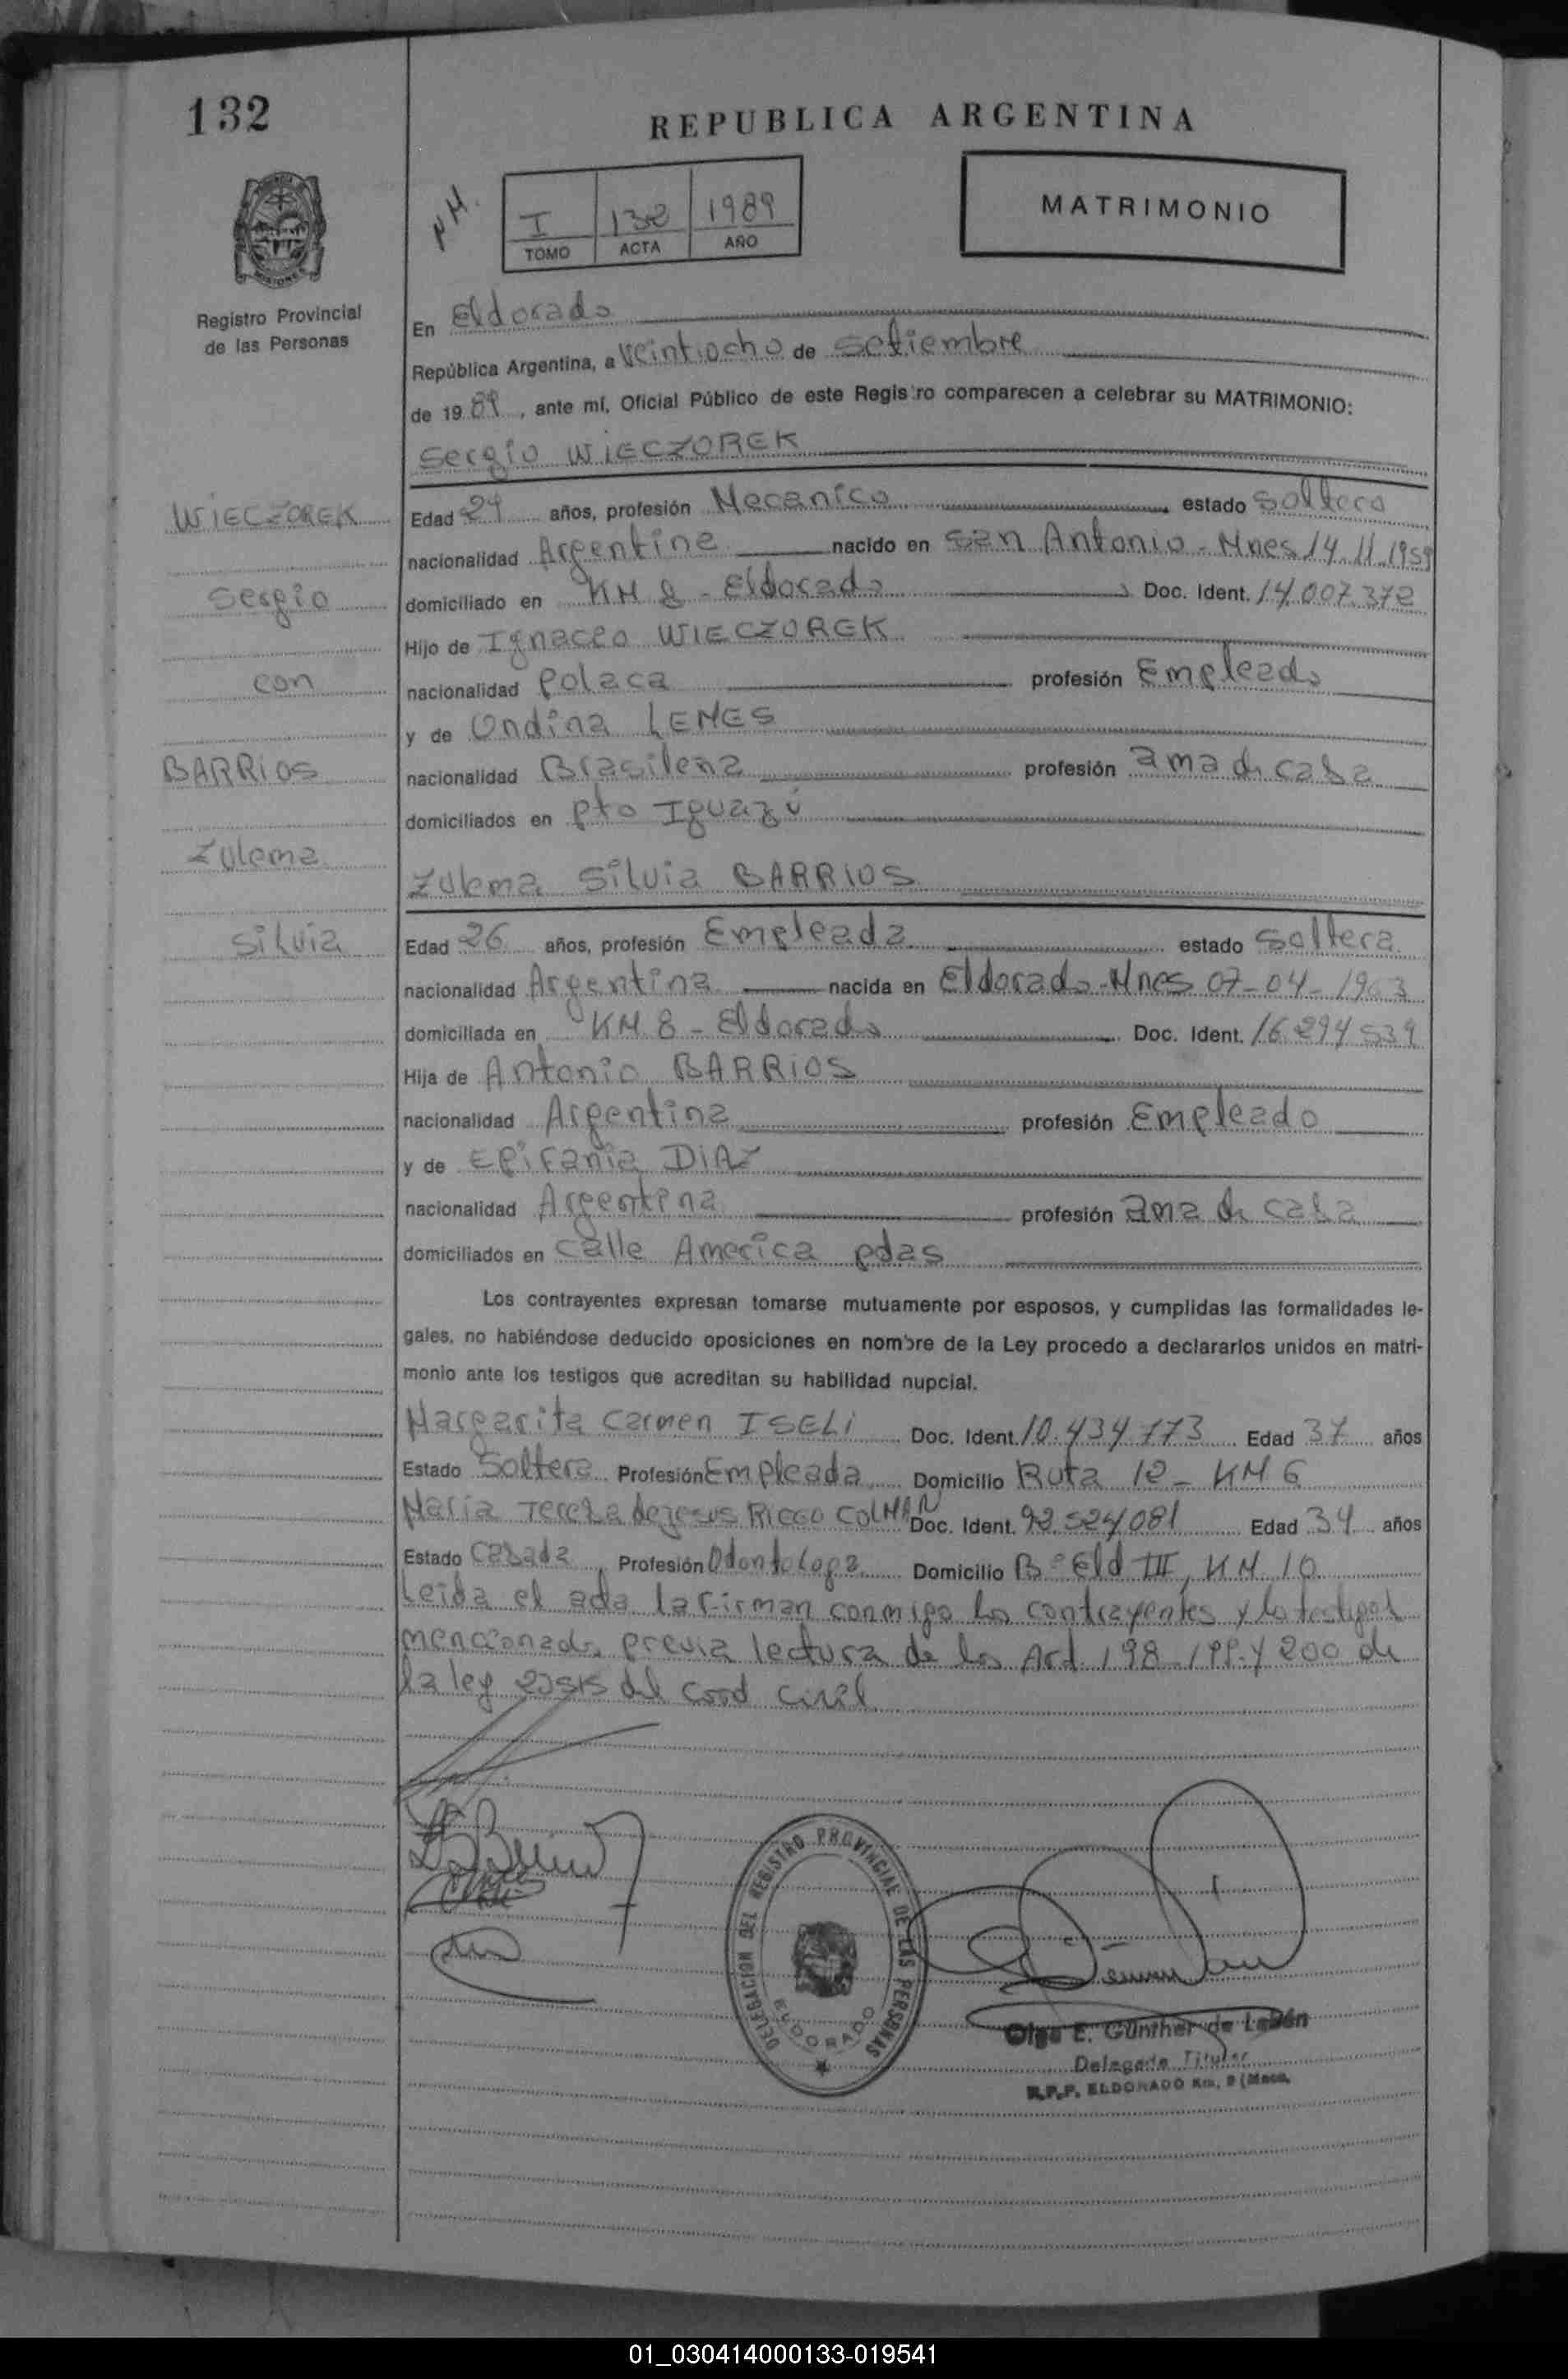 132
REPUBLICA ARGENTINA
N.H.
I 132 1989
TOMO ACTA AÑO
MATRIMONIO
Registro Provincial
de las Personas
En Eldorado
República Argentina, a Veintiocho de setiembre
de 19 89, ante mí, Oficial Público de este Registro comparecen a celebrar su MATRIMONIO:
Sergio WIECZOREK
WIECZOREK
Sergio
con
BARRIOS
Zulema
Silvia
Edad 29 años, profesión Mecanico estado Soltero
nacionalidad Argentina nacido en San Antonio - Mnes 14.11.1959
domiciliado en KM 8 - Eldorado Doc. Ident. 14.007.372
Hijo de Ignacio WIECZOREK
nacionalidad Polaca profesión Empleado
y de Ondina LEMES
nacionalidad Brasilena profesión ama de casa
domiciliados en Pto Iguazú
Zulema Silvia BARRIOS
Edad 26 años, profesión Empleada estado Soltera
nacionalidad Argentina nacida en Eldorado - Mnes 07-04-1963
domiciliada en KM 8 - Eldorado Doc. Ident. 16.294.539
Hija de Antonio BARRIOS
nacionalidad Argentina profesión Empleado
y de Epifania DIAZ
nacionalidad Argentina profesión ama de casa
domiciliados en Calle America pdas
Los contrayentes expresan tomarse mutuamente por esposos, y cumplidas las formalidades le-
gales, no habiéndose deducido oposiciones en nombre de la Ley procedo a declararlos unidos en matri-
monio ante los testigos que acreditan su habilidad nupcial.
Margarita Carmen ISELI Doc. Ident. 10.434.173 Edad 37 años
Estado Soltera Profesión Empleada Domicilio Ruta 12 - KM 6
Maria Tereza de jesus Ricco COLMAN Doc. Ident. 92.524.081 Edad 34 años
Estado Casada Profesión Odontologa Domicilio B° Eld III, KM 10
Leida el acta la firman conmigo los contrayentes y los testigos
mencionados previa lectura de los Art 198-199-y 200 de
la ley 23515 del Cood Civil
DELEGACION DEL REGISTRO PROVINCIAL DE LAS PERSONAS
ELDORADO
Olga E. Günther de Labén
Delegada Titular
R.P.P. ELDORADO Km. 9
01_030414000133-019541